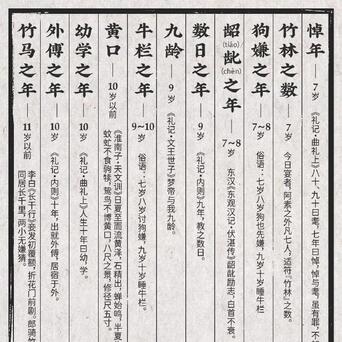 悼年 7岁 《礼记·曲礼上》八十、九十曰耄,七年曰悼,悼与耄,虽有罪,不
竹林之数 7岁 今日宴者,阿素之外凡七人,适符“竹林”之数。
狗嫌之年 7~8岁 俗语:七岁八岁狗也先嫌,九岁十岁睡牛栏
龆(tiáo)龀(chèn)之年 7~8岁 东汉《东观汉记·伏湛传》龆龀励志,白首不衰。
数日之年 9岁 《礼记·内则》九年,教之数日。
九龄 9岁 《礼记·文王世子》梦帝与我九龄。
牛栏之年 9~10岁 俗语:七岁八岁讨狗嫌,九岁十岁睡牛栏
黄口 10岁以前 《淮南子·天文训》日夏至而流黄泽,石精出,蝉始鸣,半夏
蚊虻不食驹犊,鸷鸟不博黄口,八尺之景,修径尺五寸。
幼学之年 10岁 《礼记·曲礼上》人生十年曰幼,学。
外傅之年 10岁 《礼记·内则》十年,出就外傅,居宿于外。
竹马之年 11岁以前 李白《长干行》妾发初覆额,折花门前剧。郎骑竹
同居长千里,两小无嫌猜。